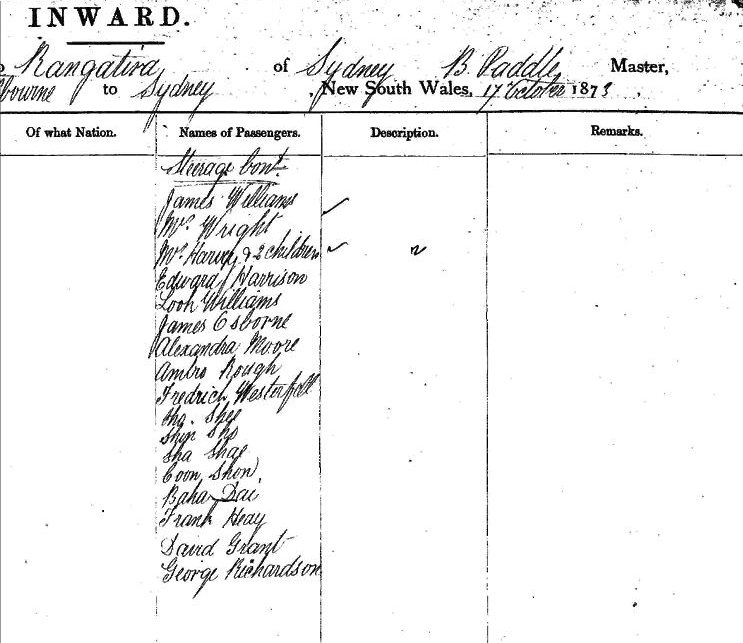 INWARD.
Rangatira of Sydney B. Paddle, Master,
bourne to Sydney, New South Wales, 17 October 1873.
Of what Nation. Names of Passengers. Description. Remarks.
Steerage Cont.
James Williams
Mrs. Wright
Mrs. Harvey & 2 children
Edward Harrison
Williams
James Osborne
Alexandra Moore
Ambro Rough
Fredrich Westerfell
Sha Shae
Coon Shon
Baha Dai
Frank Heay
David Grant
George Richardson